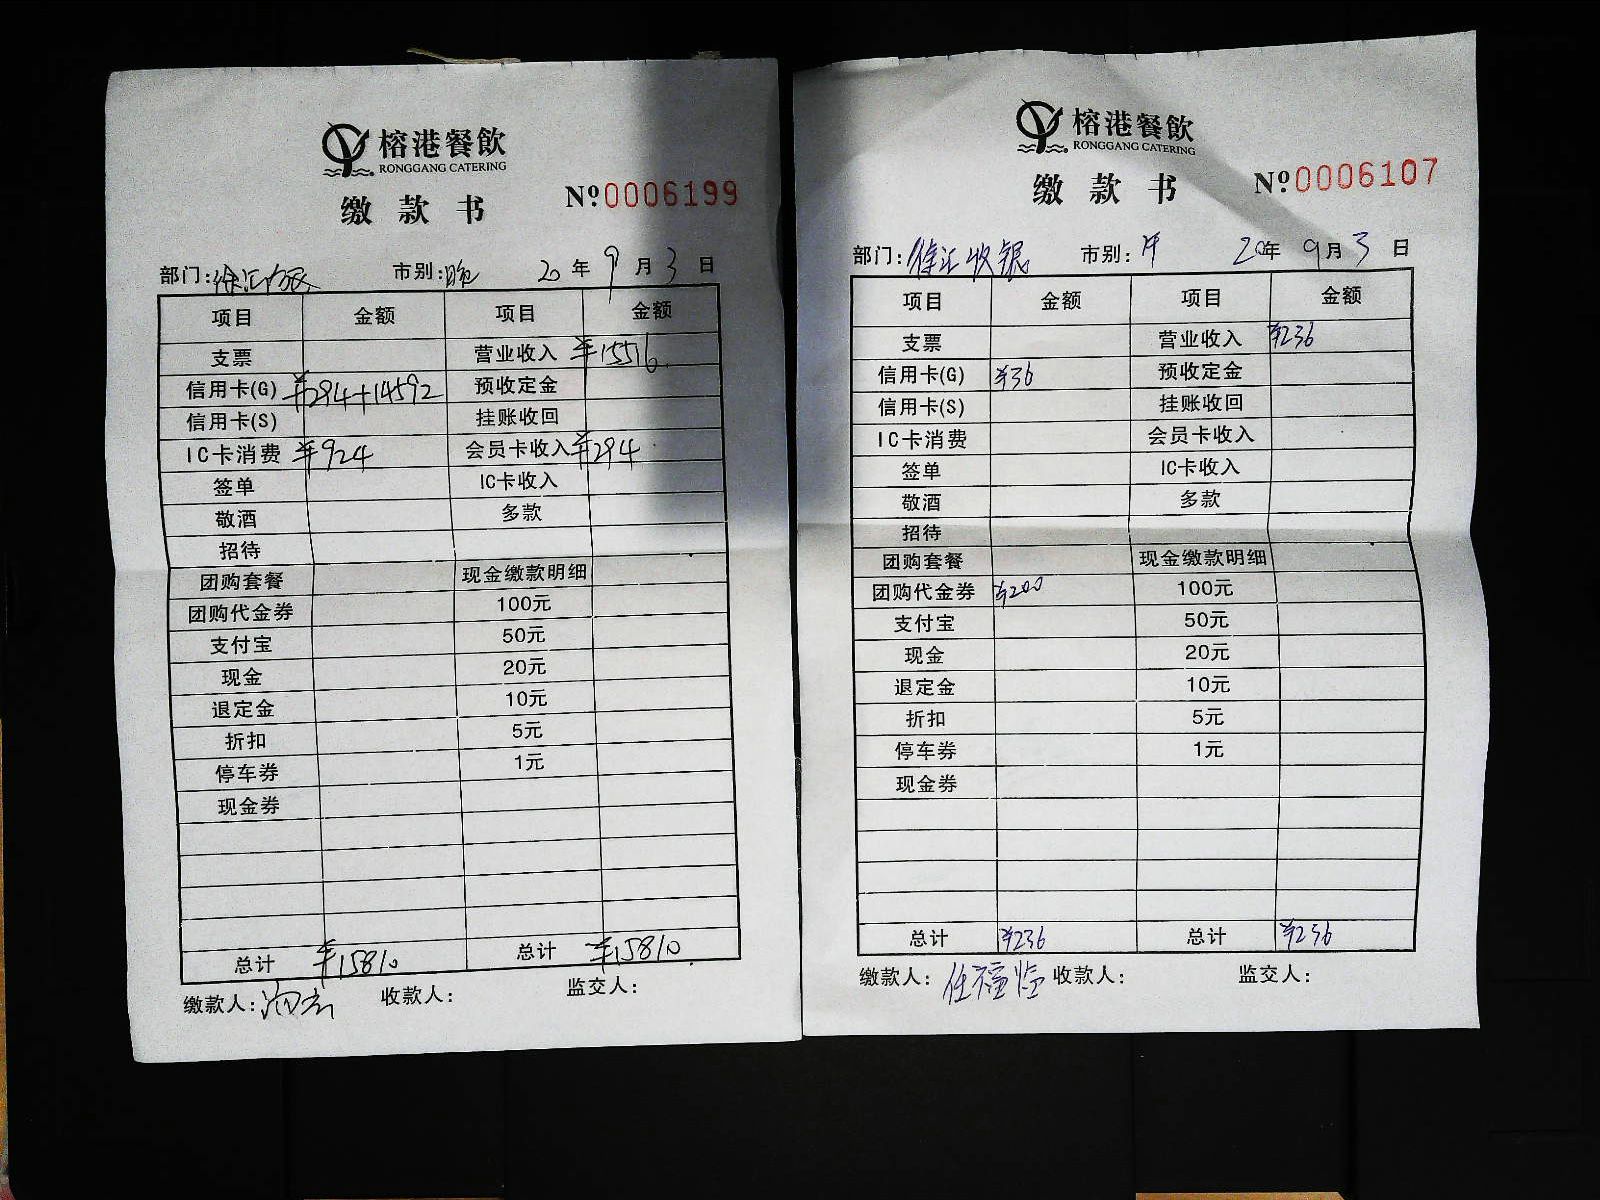 榕港餐飲
RONGGANG CATERING
缴款书 №0006199
部门:徐汇收银 市别:晚 20年9月3日
项目 金额 项目 金额
支票 营业收入 ¥15516
信用卡(G) ¥294+14592 预收定金
信用卡(S) 挂账收回
IC卡消费 ¥924 会员卡收入 ¥294
签单 IC卡收入
敬酒 多款
招待
团购套餐 现金缴款明细
团购代金券 100元
支付宝 50元
现金 20元
退定金 10元
折扣 5元
停车券 1元
现金券
总计 ¥15810 总计 ¥15810
缴款人: 收款人: 监交人:
榕港餐飲
RONGGANG CATERING
缴款书 №0006107
部门:徐汇收银 市别: 20年9月3日
项目 金额 项目 金额
支票 营业收入 ¥236
信用卡(G) ¥36 预收定金
信用卡(S) 挂账收回
IC卡消费 会员卡收入
签单 IC卡收入
敬酒 多款
招待
团购套餐 现金缴款明细
团购代金券 ¥200 100元
支付宝 50元
现金 20元
退定金 10元
折扣 5元
停车券 1元
现金券
总计 ¥236 总计 ¥236
缴款人: 收款人: 监交人: